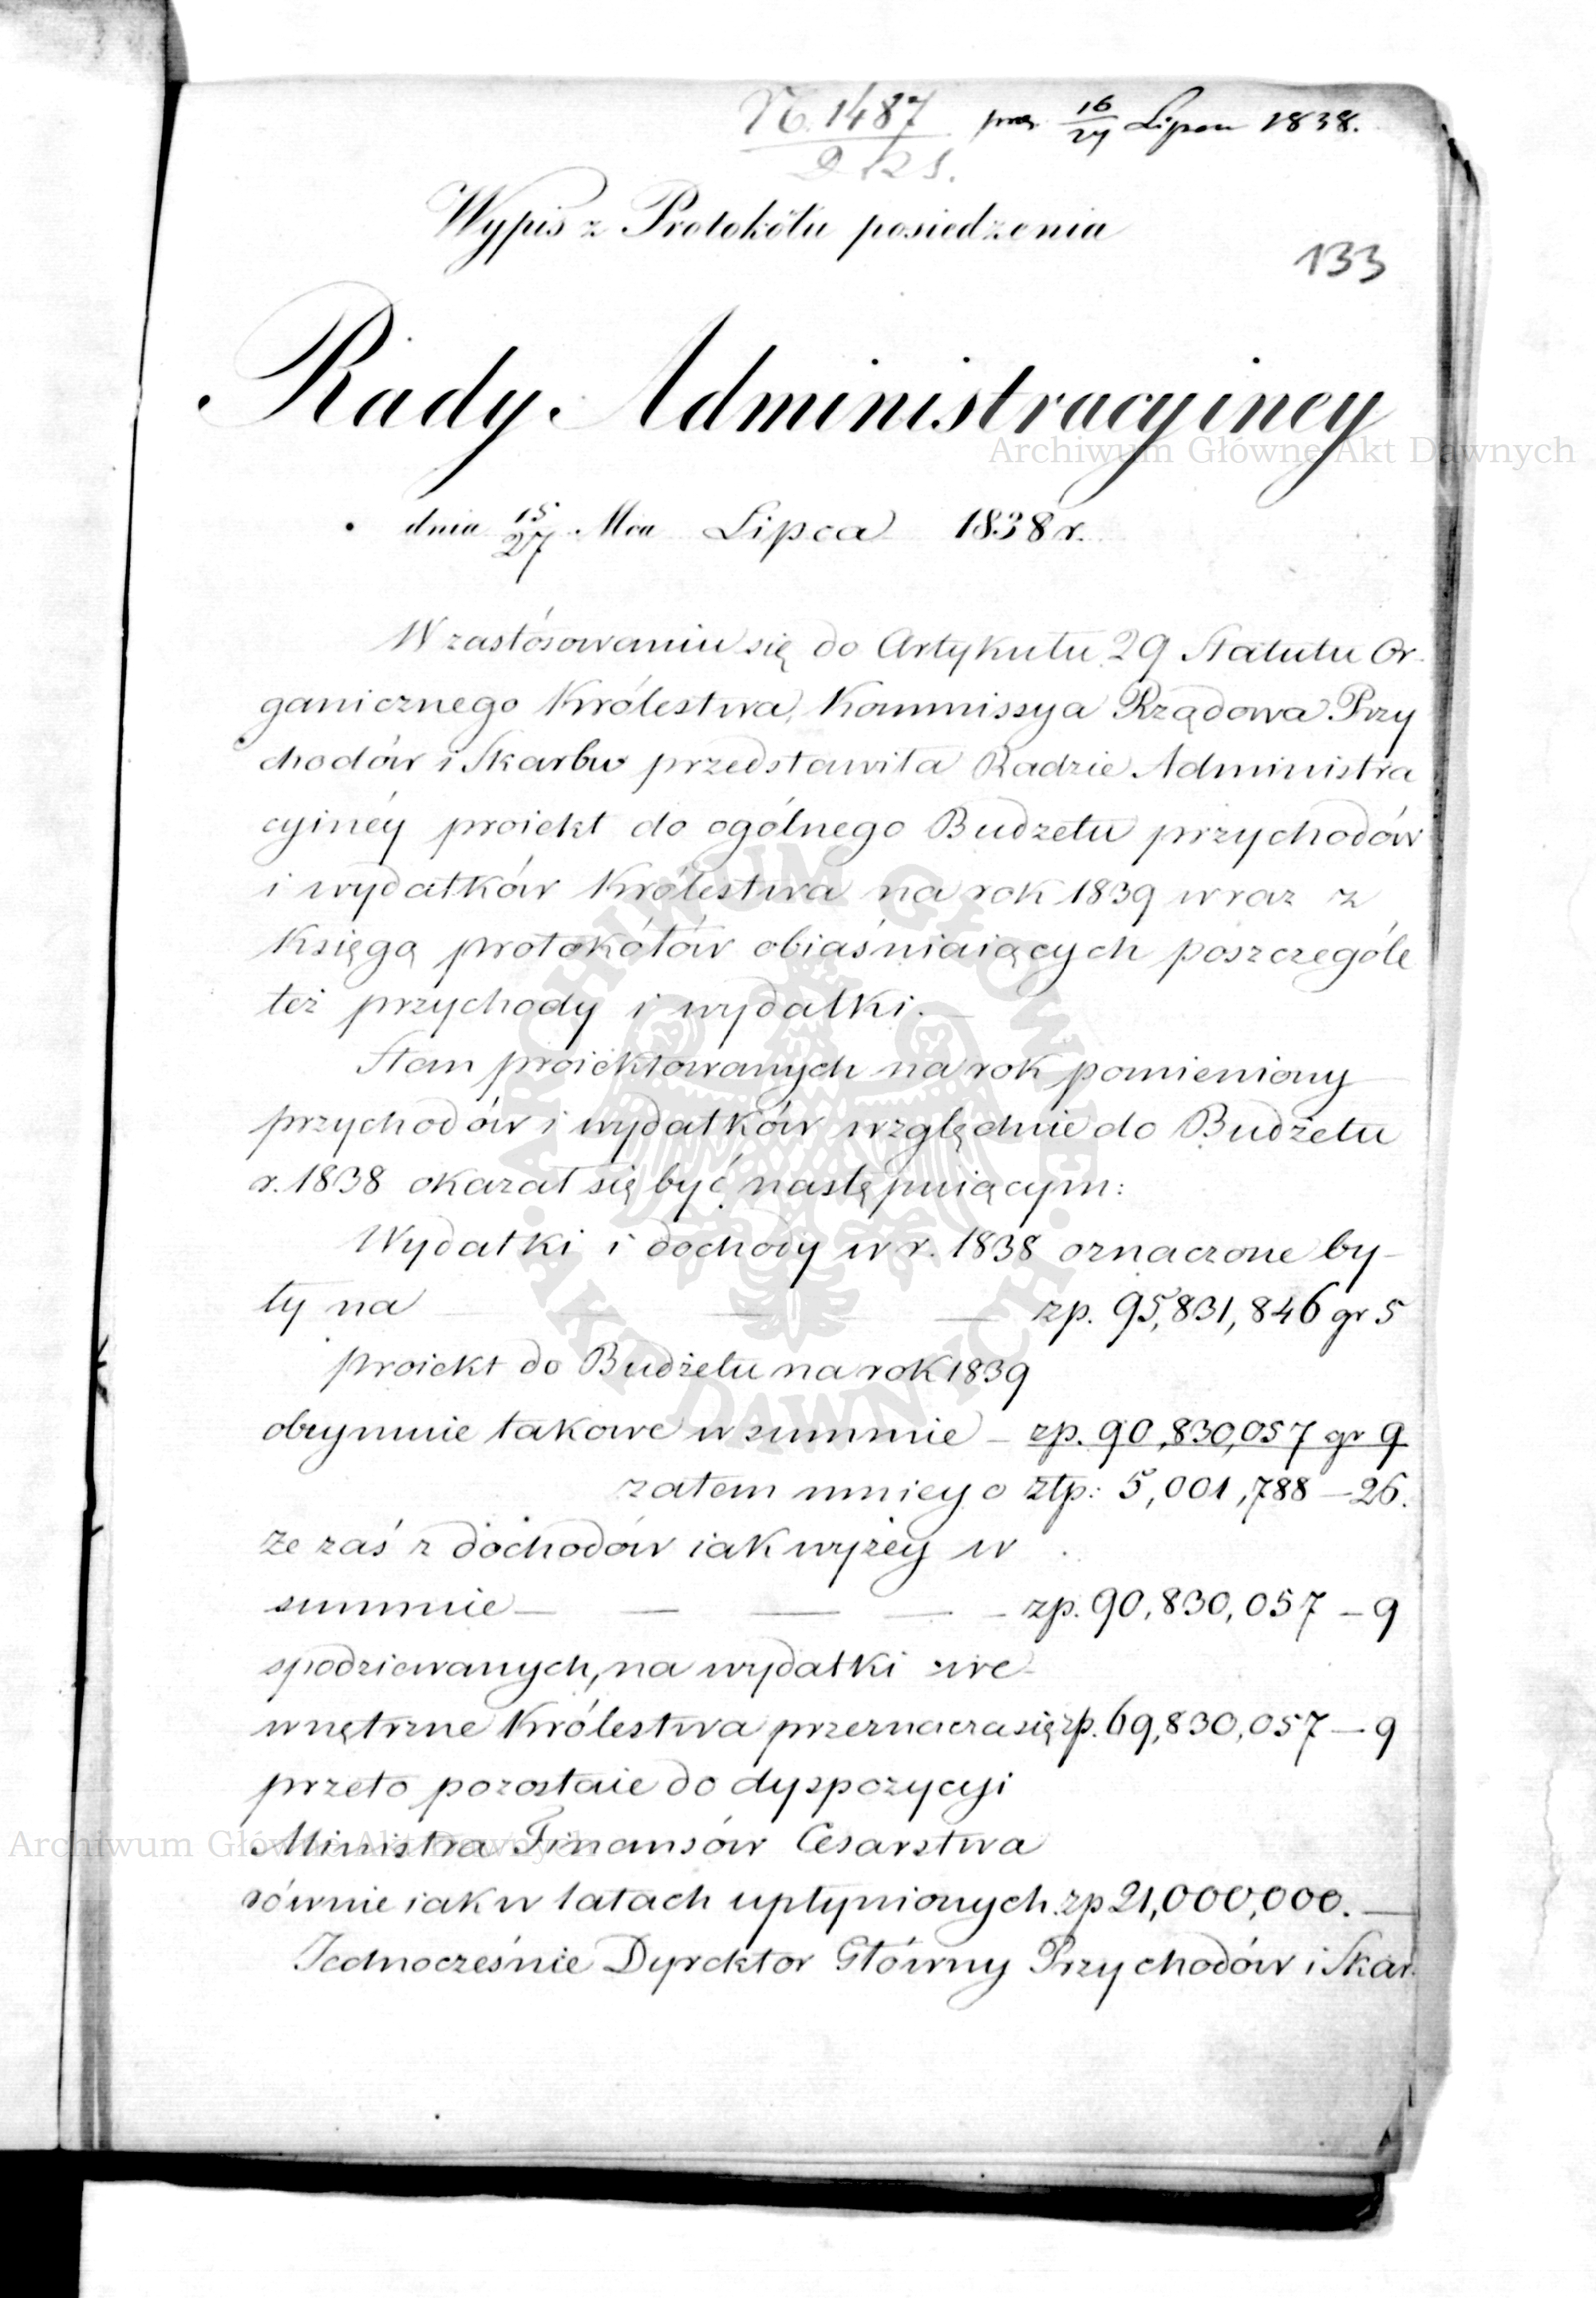 N. 1487 prez. 16/27 Lipca 1838.
Wypis z Protokółu posiedzenia
133
Rady Administracyiney
Archiwum Główne Akt Dawnych
dnia 15/27 Mca Lipca 1838 r.
W zastósowaniu się do Artykułu 29 Statutu Or-
ganicznego Królestwa, Kommissya Rządowa Przy
chodów i Skarbu przedstawiła Radzie Administra
cyinéy proiekt do ogólnego Budżetu przychodów
i wydatków Królestwa na rok 1839 wraz z
Księgą protokółów obiaśniaiących poszczególe
też przychody i wydatki.
Stan proiektowanych na rok pomieniony
przychodów i wydatków względnie do Budżetu
r. 1838 okazał się być następuiącym:
Wydatki i dochody w r. 1838 oznaczone by-
ły na — zp. 95,831,846 gr 5
proiekt do Budżetu na rok 1839
obeymuie takowe w summie — zp. 90,830,057 gr 9
zatem mniey o złp: 5,001,788 — 26.
że zaś z dochodów iak wyżey w
summie — — — — zp. 90,830,057 — 9
spodziewanych, na wydatki we-
wnętrzne Królestwa przeznacza się zp. 69,830,057 — 9
przeto pozostaie do dyspozycyi
Ministra Finansów Cesarstwa
Archiwum Główne Akt Dawnych
równie iak w latach upłynionych zp 21,000,000. —
Jednocześnie Dyrektor Główny Przychodów i Skar-
ARCHIWUM GŁÓWNE
AKT DAWNYCH